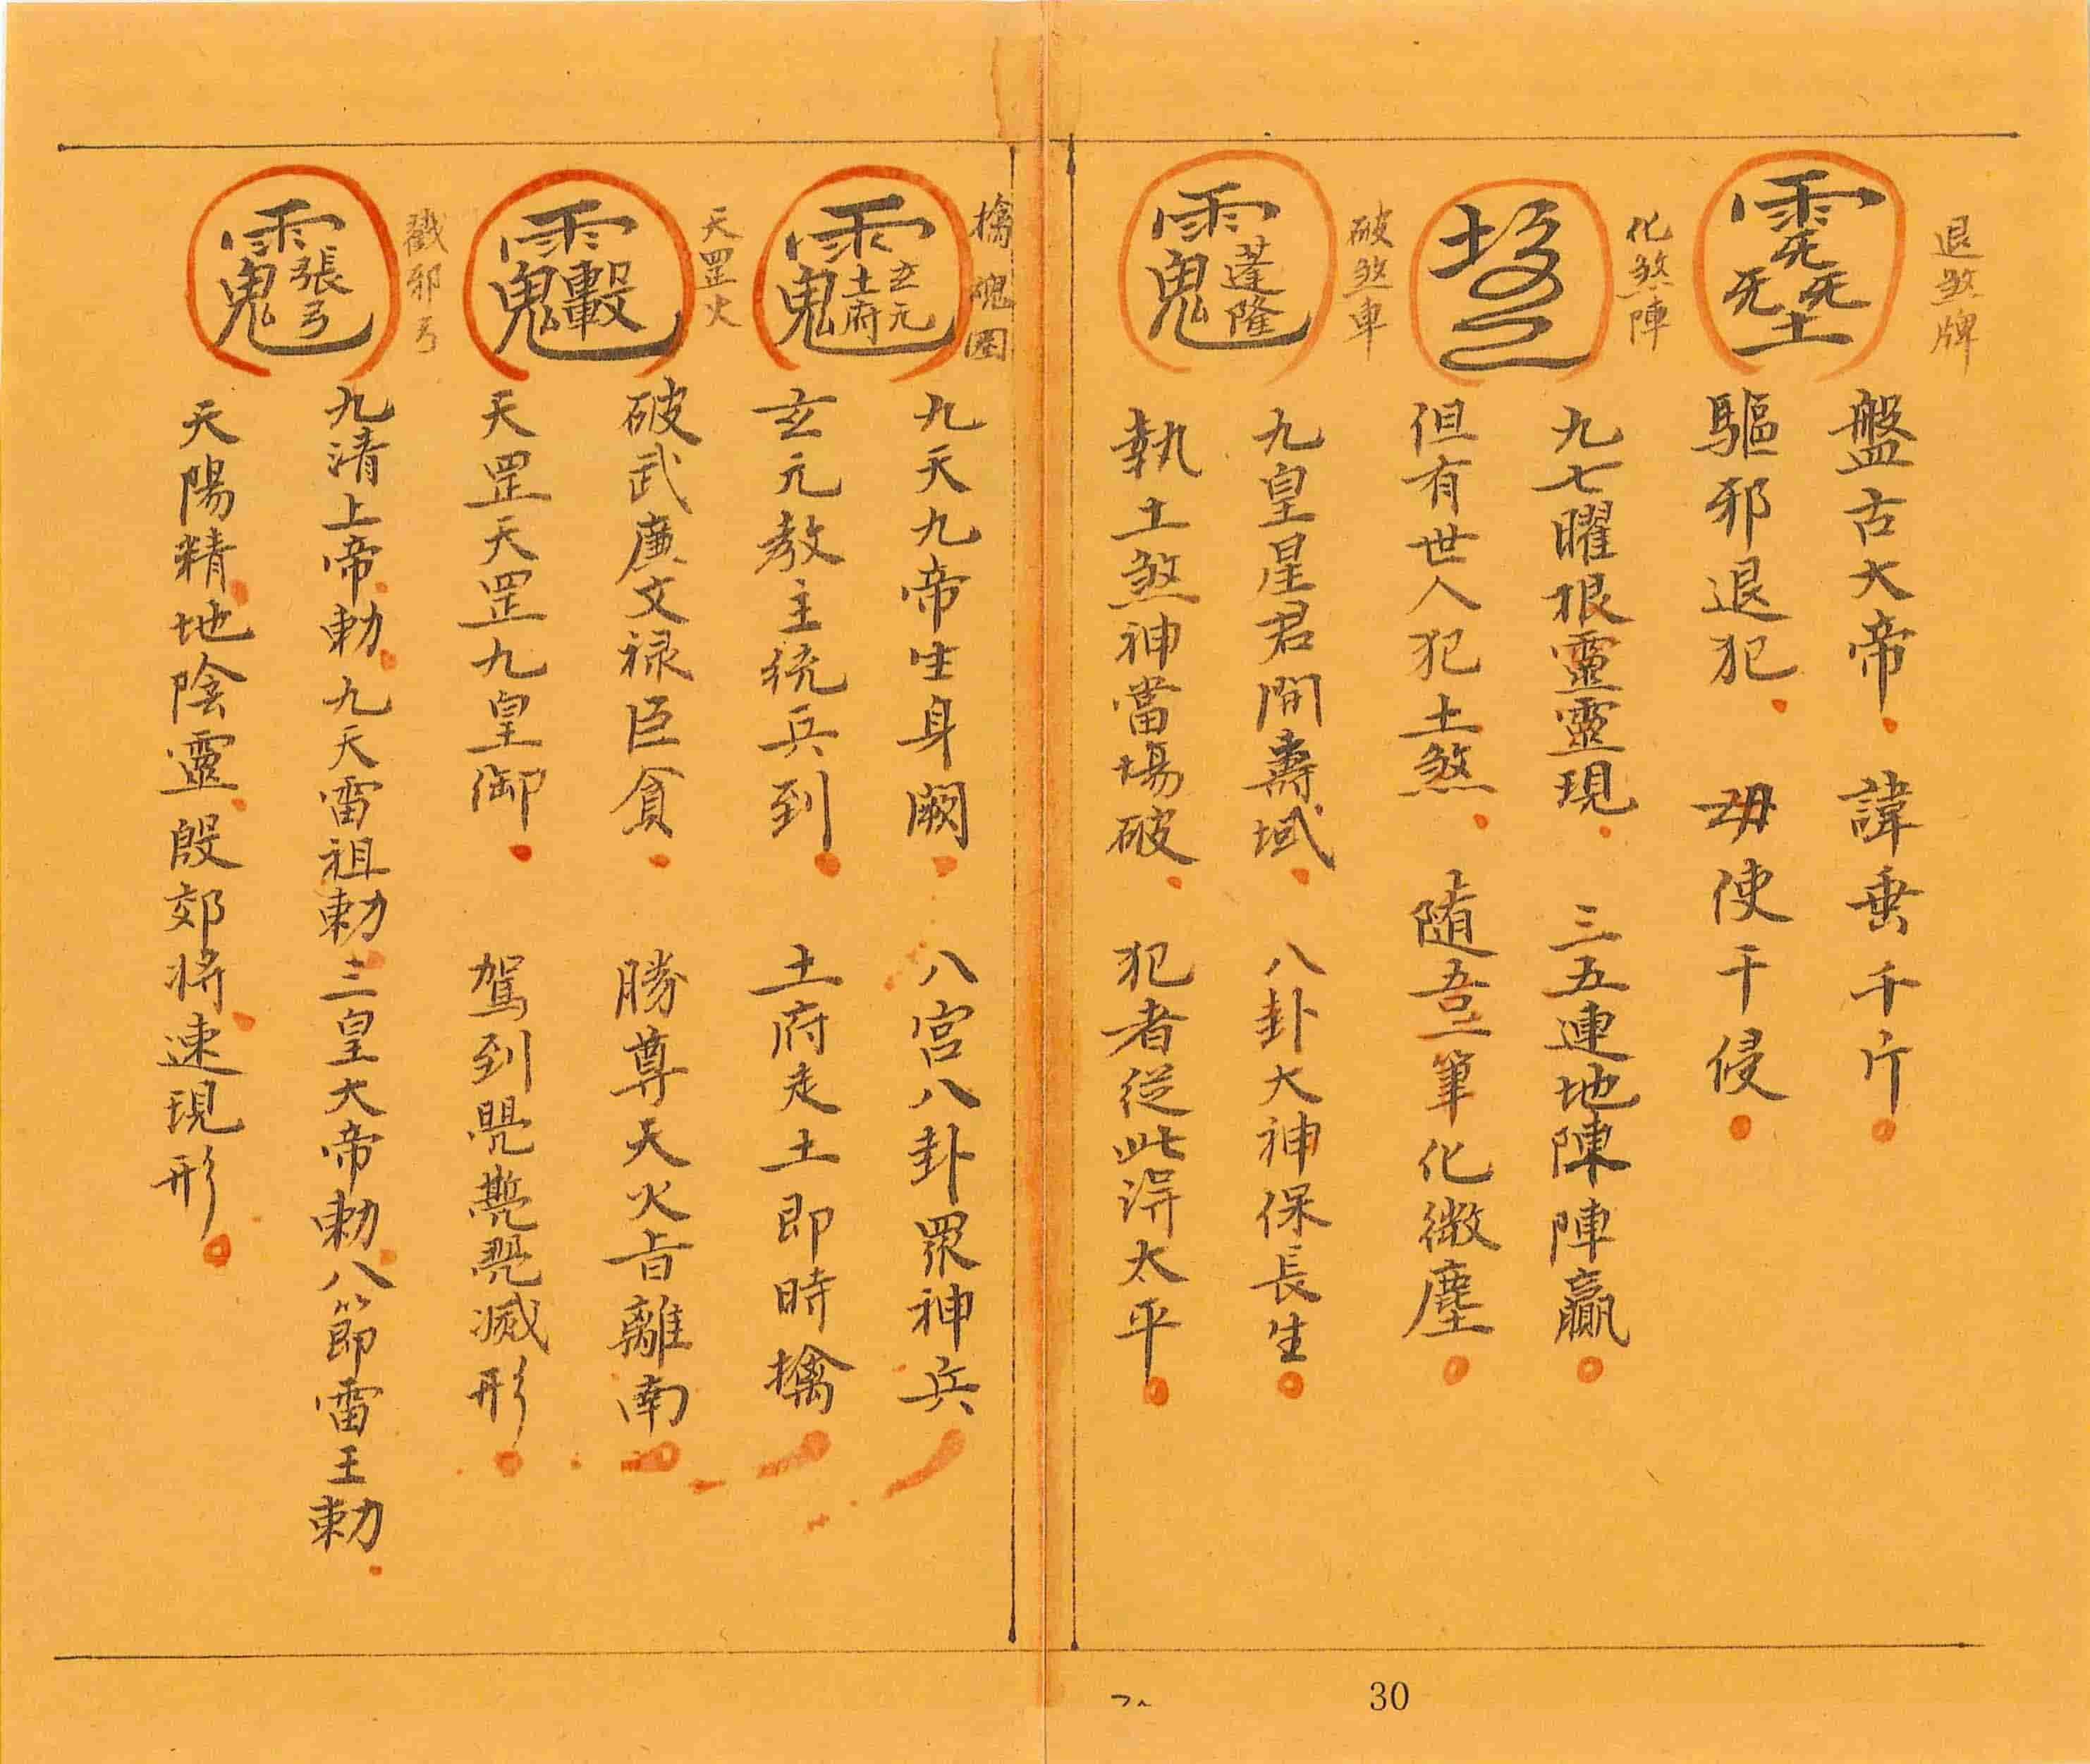 退煞牌
盤古大帝 諱垂千斤
驅邪退犯 毋使干侵
化煞陣
九七曜狠靈靈現 三五連地陳陣贏
但有世人犯土煞 隨吾一筆化微塵
破煞車
九皇星君間壽域 八卦大神保長生
執土煞神當場破 犯者從此得太平
擒魂圈
九天九帝生身闕 八宮八卦眾神兵
玄元教主統兵到 土府走土即時擒
天罡火
破武廉文祿臣貪 勝尊天火旨離南
天罡天罡九皇御 駕到 滅形
戳邪弓
九清上帝勅九天雷祖勅三皇大帝勅八節雷王勅
天陽精地陰靈殷郊將速現形
30